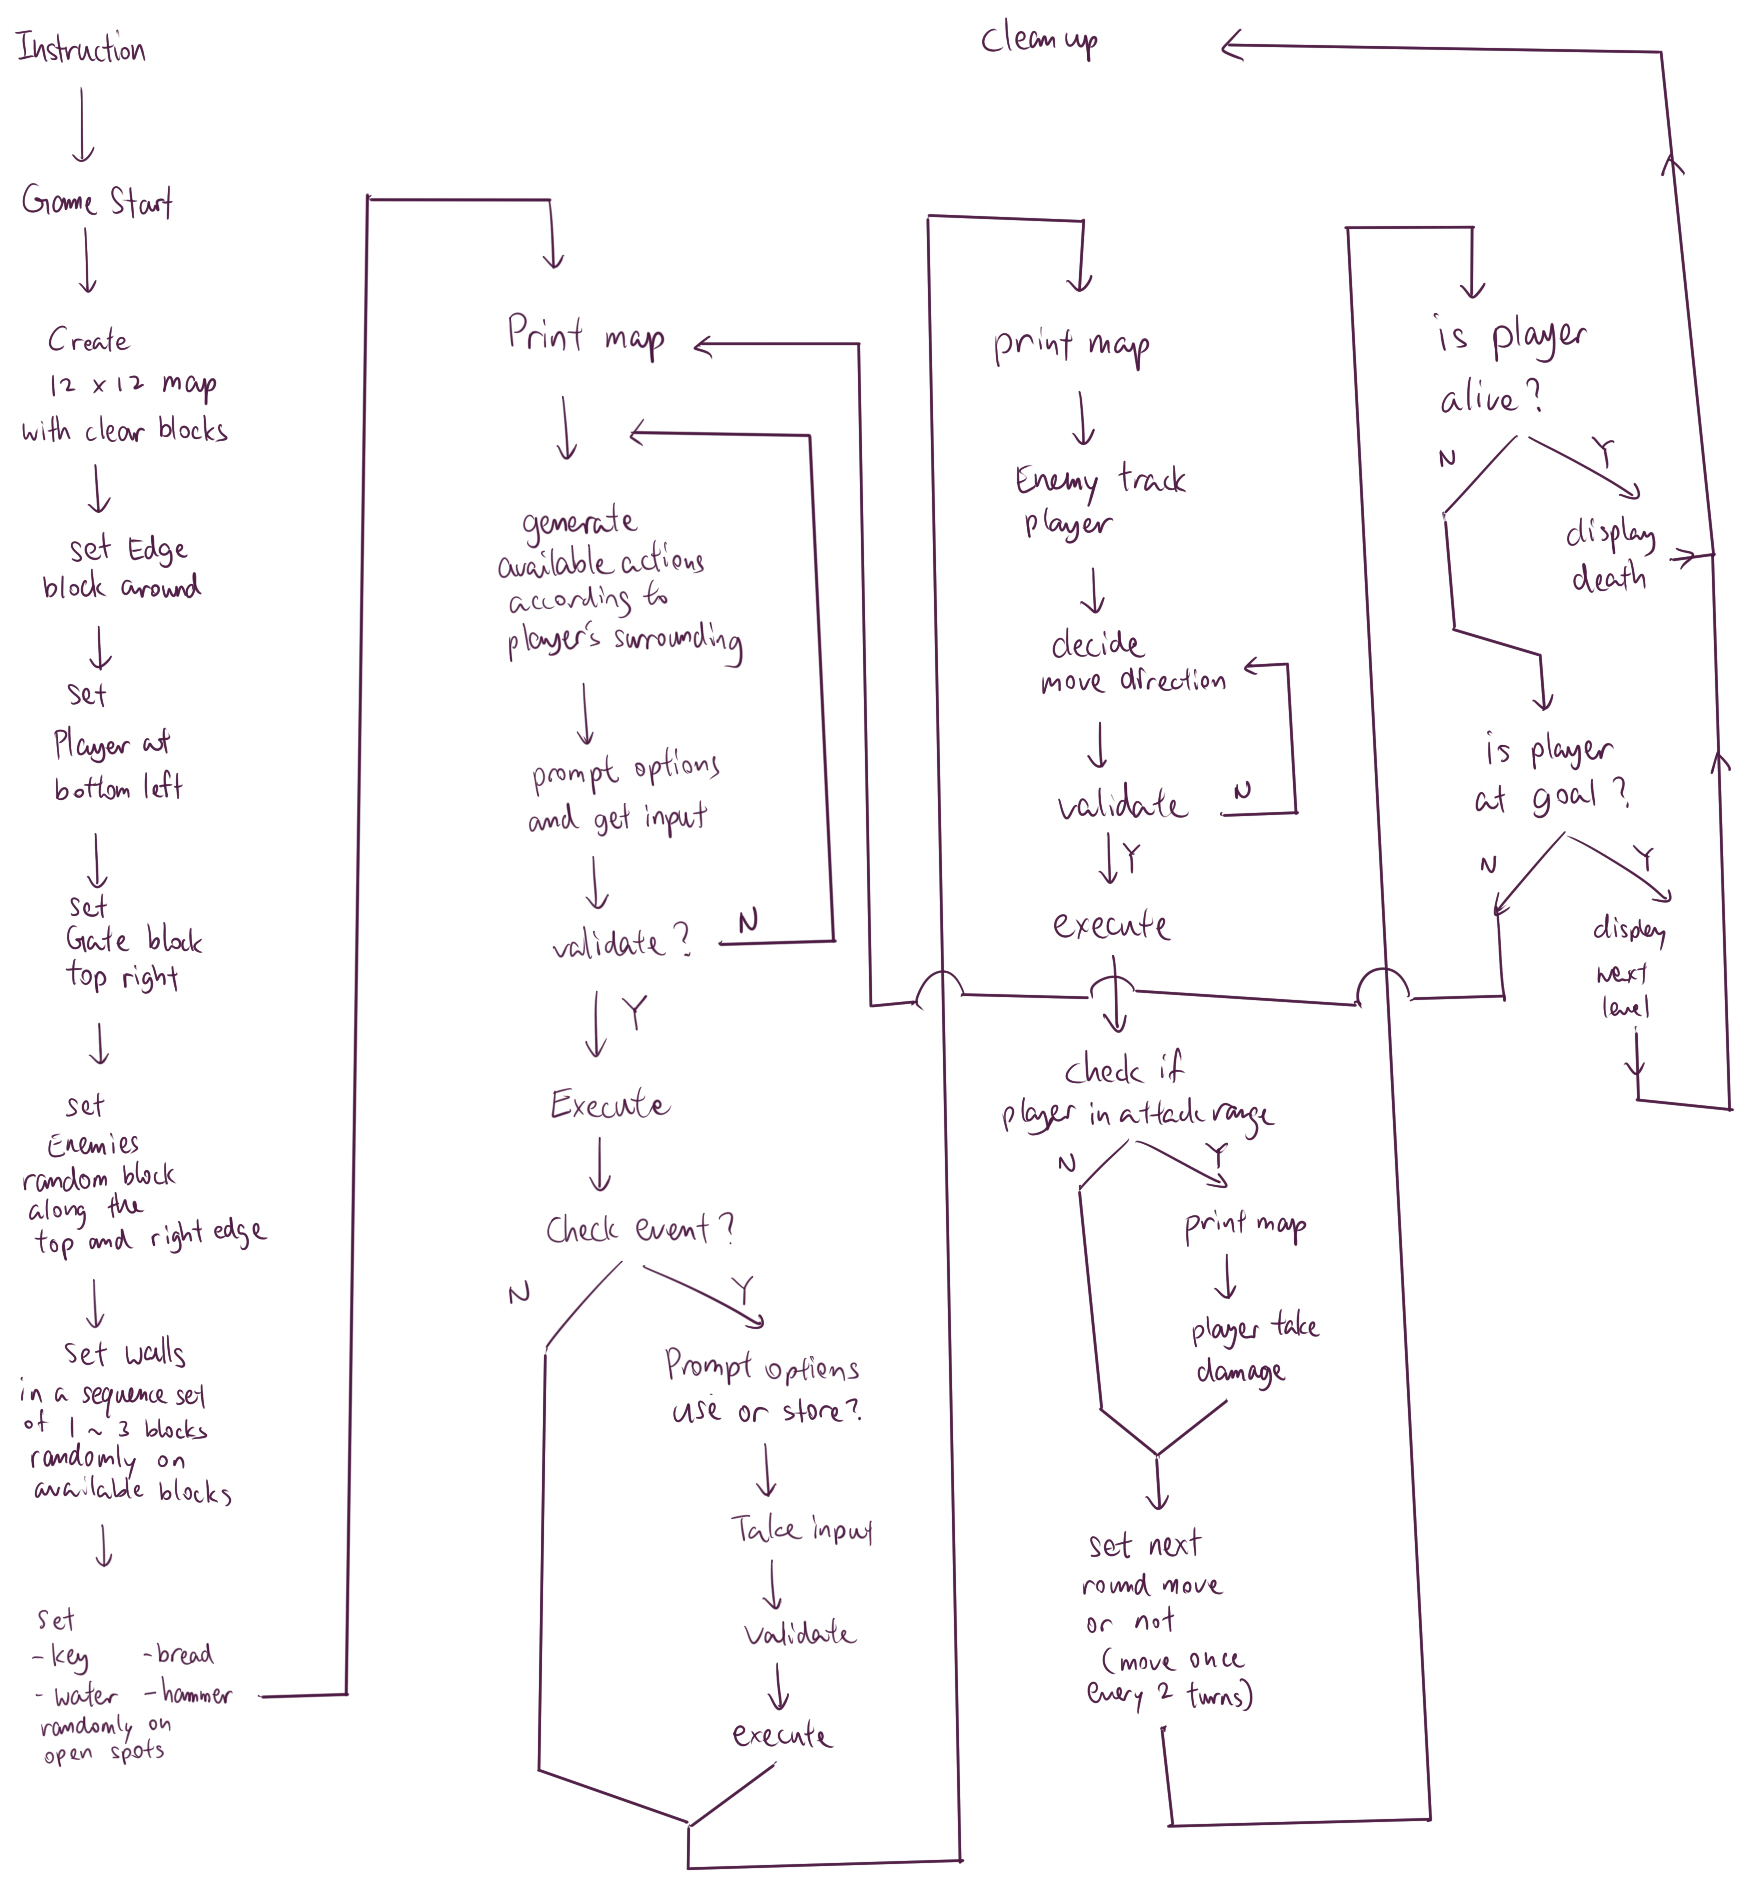 Instruction
Game Start
Create
12 x 12 map
with clear blocks
set Edge
block around
set
Player at
bottom left
set
Gate block
top right
set
Enemies
random block
along the
top and right edge
Set walls
in a sequence set
of 1 ~ 3 blocks
randomly on
available blocks
Set
- key - bread
- water - hammer
randomly on
open spots
Print map
generate
available actions
according to
player's surrounding
prompt options
and get input
validate?
N
Y
Execute
Check event?
N
Y
Prompt options
use or store?
Take input
Validate
execute
Clean up
print map
Enemy track
player
decide
move direction
validate
N
Y
execute
check if
player in attack range
N
Y
print map
player take
damage
set next
round move
or not
(move once
every 2 turns)
is player
alive?
N
Y
display
death
is player
at goal?
N
Y
display
next
level